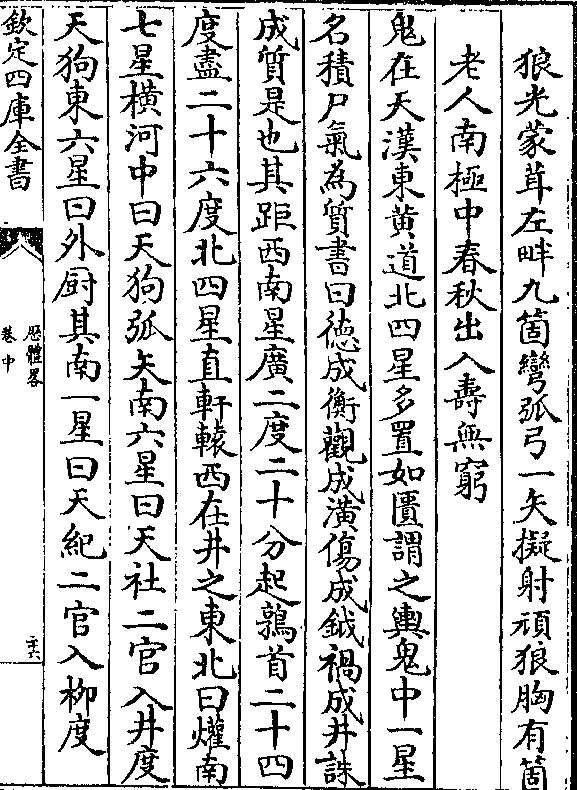 狼光蒙茸左畔九箇彎弧弓一矢擬射頑狼胸有箇
老人南極中春秋出入壽無窮
鬼在天漢東黄道北四星多置如匱謂之輿鬼中一星
名積尸氣為質書曰徳成衡觀成潢傷成鉞禍成井誅
成質是也其距西南星廣二度二十分起鶉首二十四
度盡二十六度北四星直軒轅西在井之東北曰爟南
七星横河中曰天狗弧矢南六星曰天社二官入井度
天狗東六星曰外厨其南一星曰天紀二官入柳度
欽定四庫全書
厯體畧
巻中
二六